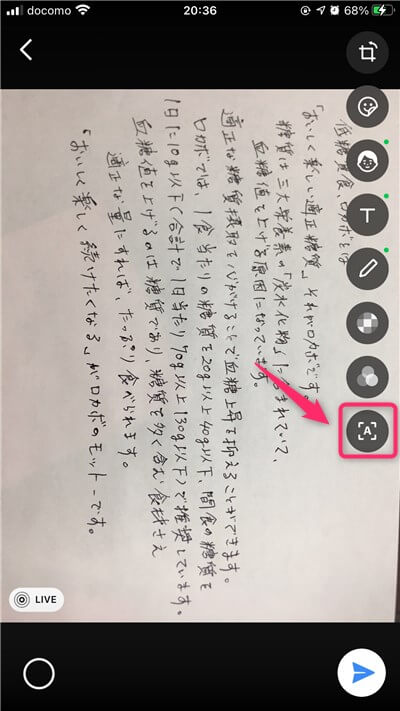 docomo 20:36 68%
T
A
低糖質食 ロカボとは
「おいしく楽しい適正糖質」それがロカボです。
糖質は三大栄養素の「炭水化物」に含まれていて、
血糖値を上げる原因になっています。
適正な糖質摂取を心がけることで血糖上昇を抑えることができます。
ロカボでは、1食当たりの糖質を20g以上40g以下、間食の糖質を
1日に10g以下(合計で1日当たり70g以上130g以下)で推奨しています。
血糖値を上げるのは糖質であり、糖質を多く含む食材さえ
適正な量にすれば、たっぷり食べられます。
「おいしく楽しく続けたくなる」がロカボのモットーです。
LIVE